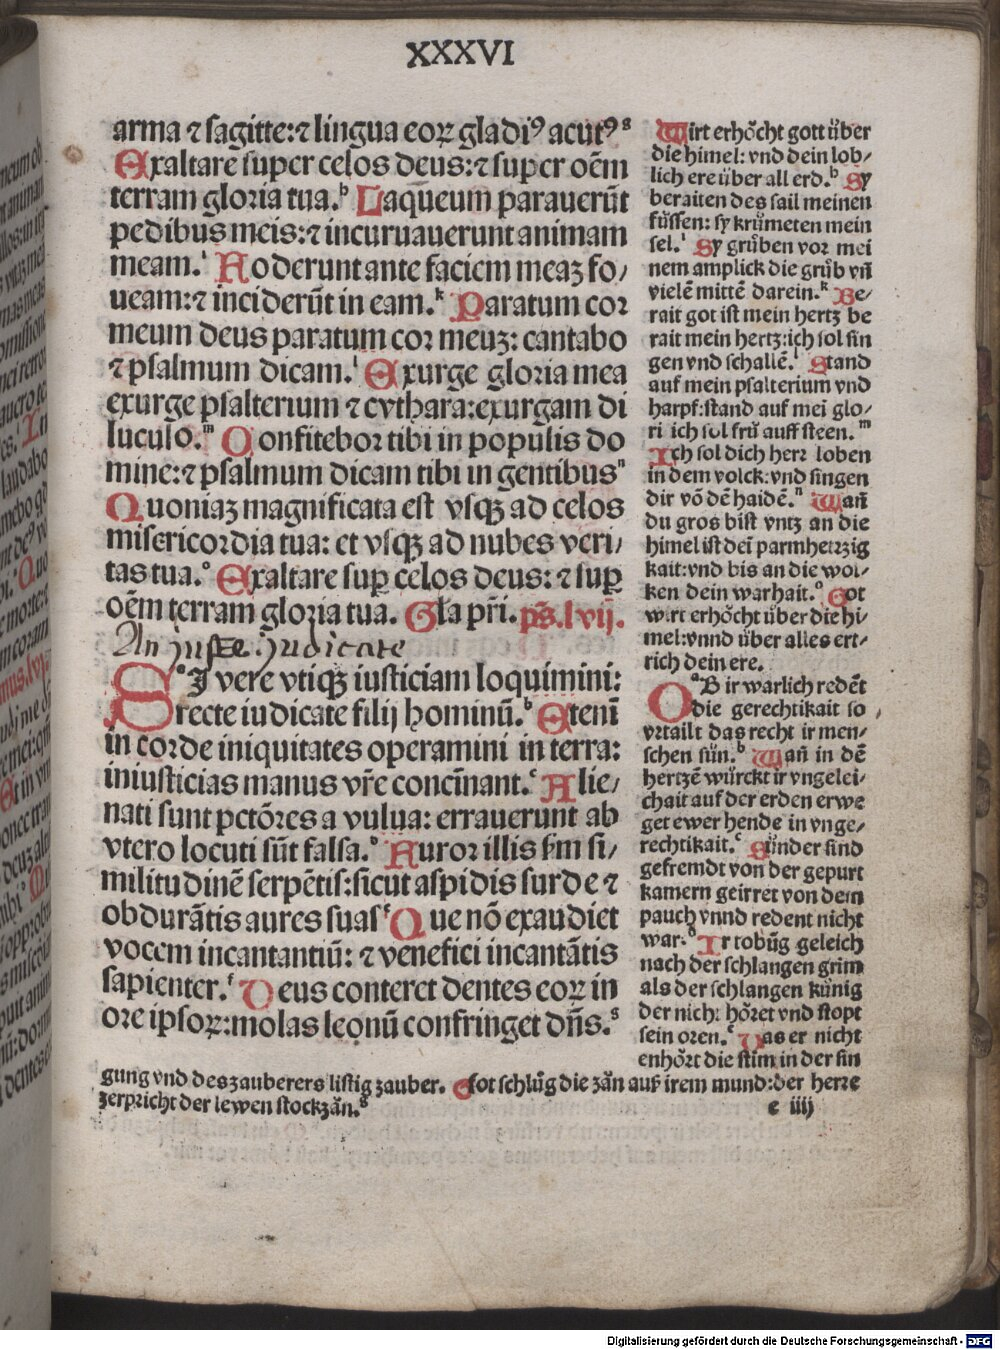 XXXVI
arma ⁊ sagitte: ⁊ lingua eoꝝ gladiꝰ acutꝰ g
Exaltare super celos deus: ⁊ super oēm
terram gloria tua. h Laqueum parauerūt
pedibus meis: ⁊ incuruauerunt animam
meam. i Foderunt ante faciem meaꝫ fo/
ueam: ⁊ inciderūt in eam. k Paratum cor
meum deus paratum cor meuꝫ: cantabo
⁊ psalmum dicam. l Exurge gloria mea
exurge psalterium ⁊ cythara: exurgam di
luculo. m Confitebor tibi in populis do
mine: ⁊ psalmum dicam tibi in gentibus n
Quoniaꝫ magnificata est vsqꝫ ad celos
misericordia tua: et vsqꝫ ad nubes veri/
tas tua. o Exaltare suꝑ celos deus: ⁊ suꝑ
oēm terram gloria tua. Gla pr̄i. ps̄. lvij.
An juste judicate
SI vere vtiqꝫ iusticiam loquimini:
recte iudicate filij hominū. b Etenī
in corde iniquitates operamini in terra:
iniusticias manus vr̄e concīnant. c Alie/
nati sunt pctōres a vulua: errauerunt ab
vtero locuti sūt falsa. d Furor illis s̄m si/
militudinē serpētis: sicut aspidis surde ⁊
obdurātis aures suas e Que nō exaudiet
vocem incantantiū: ⁊ venefici incantātis
sapienter. f Deus conteret dentes eoꝝ in
ore ipsoꝝ: molas leonū confringet dn̄s. g
Wirt erhöcht gott über
die himel: vnd dein lob/
lich ere über all erd. h Sy
beraiten des sail meinen
füssen: sy krümeten mein
sel. i Sy grüben vor mei
nem amplick die grüb vn̄
vielē mittē darein. k Be/
rait got ist mein hertz be
rait mein hertz: ich sol sin
gen vnd schallē. l Stand
auf mein psalterium vnd
harpf: stand auf mei glo/
ri ich sol frů auff steen. m
Ich sol dich herr loben
in dem volck: vnd singen
dir vō dē haidē. n Wan̄
du gros bist vntz an die
himel ist dei parmhertzig
kait: vnd bis an die wol/
ken dein warhait. o Got
wirt erhöcht über die hi/
mel: vnnd über alles ert/
rich dein ere.
OB ir warlich redēt
die gerechtikait so
vrtailt das recht ir men/
schen sün. b Wan̄ in dē
hertzē würckt ir vngelei/
chait auf der erden erwe
get ewer hende in vnge/
rechtikait. c Sünder sind
gefremdt von der gepurt
kamern geirret von dem
pauch vnnd redent nicht
war. d Ir tobūg geleich
nach der schlangen grim
als der schlangen künig
der nicht höret vnd stopt
sein oren. e Das er nicht
enhört die stim in der sin
gung vnd des zauberers listig zauber. Got schlüg die zān auß irem mund: der herre
zerpricht der lewen stockzān. g
e iiij
Digitalisierung gefördert durch die Deutsche Forschungsgemeinschaft - DFG